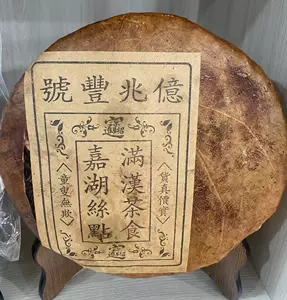 億兆豐號
<貨真價實>
滿漢茶食
嘉湖絲點
<童叟無欺>